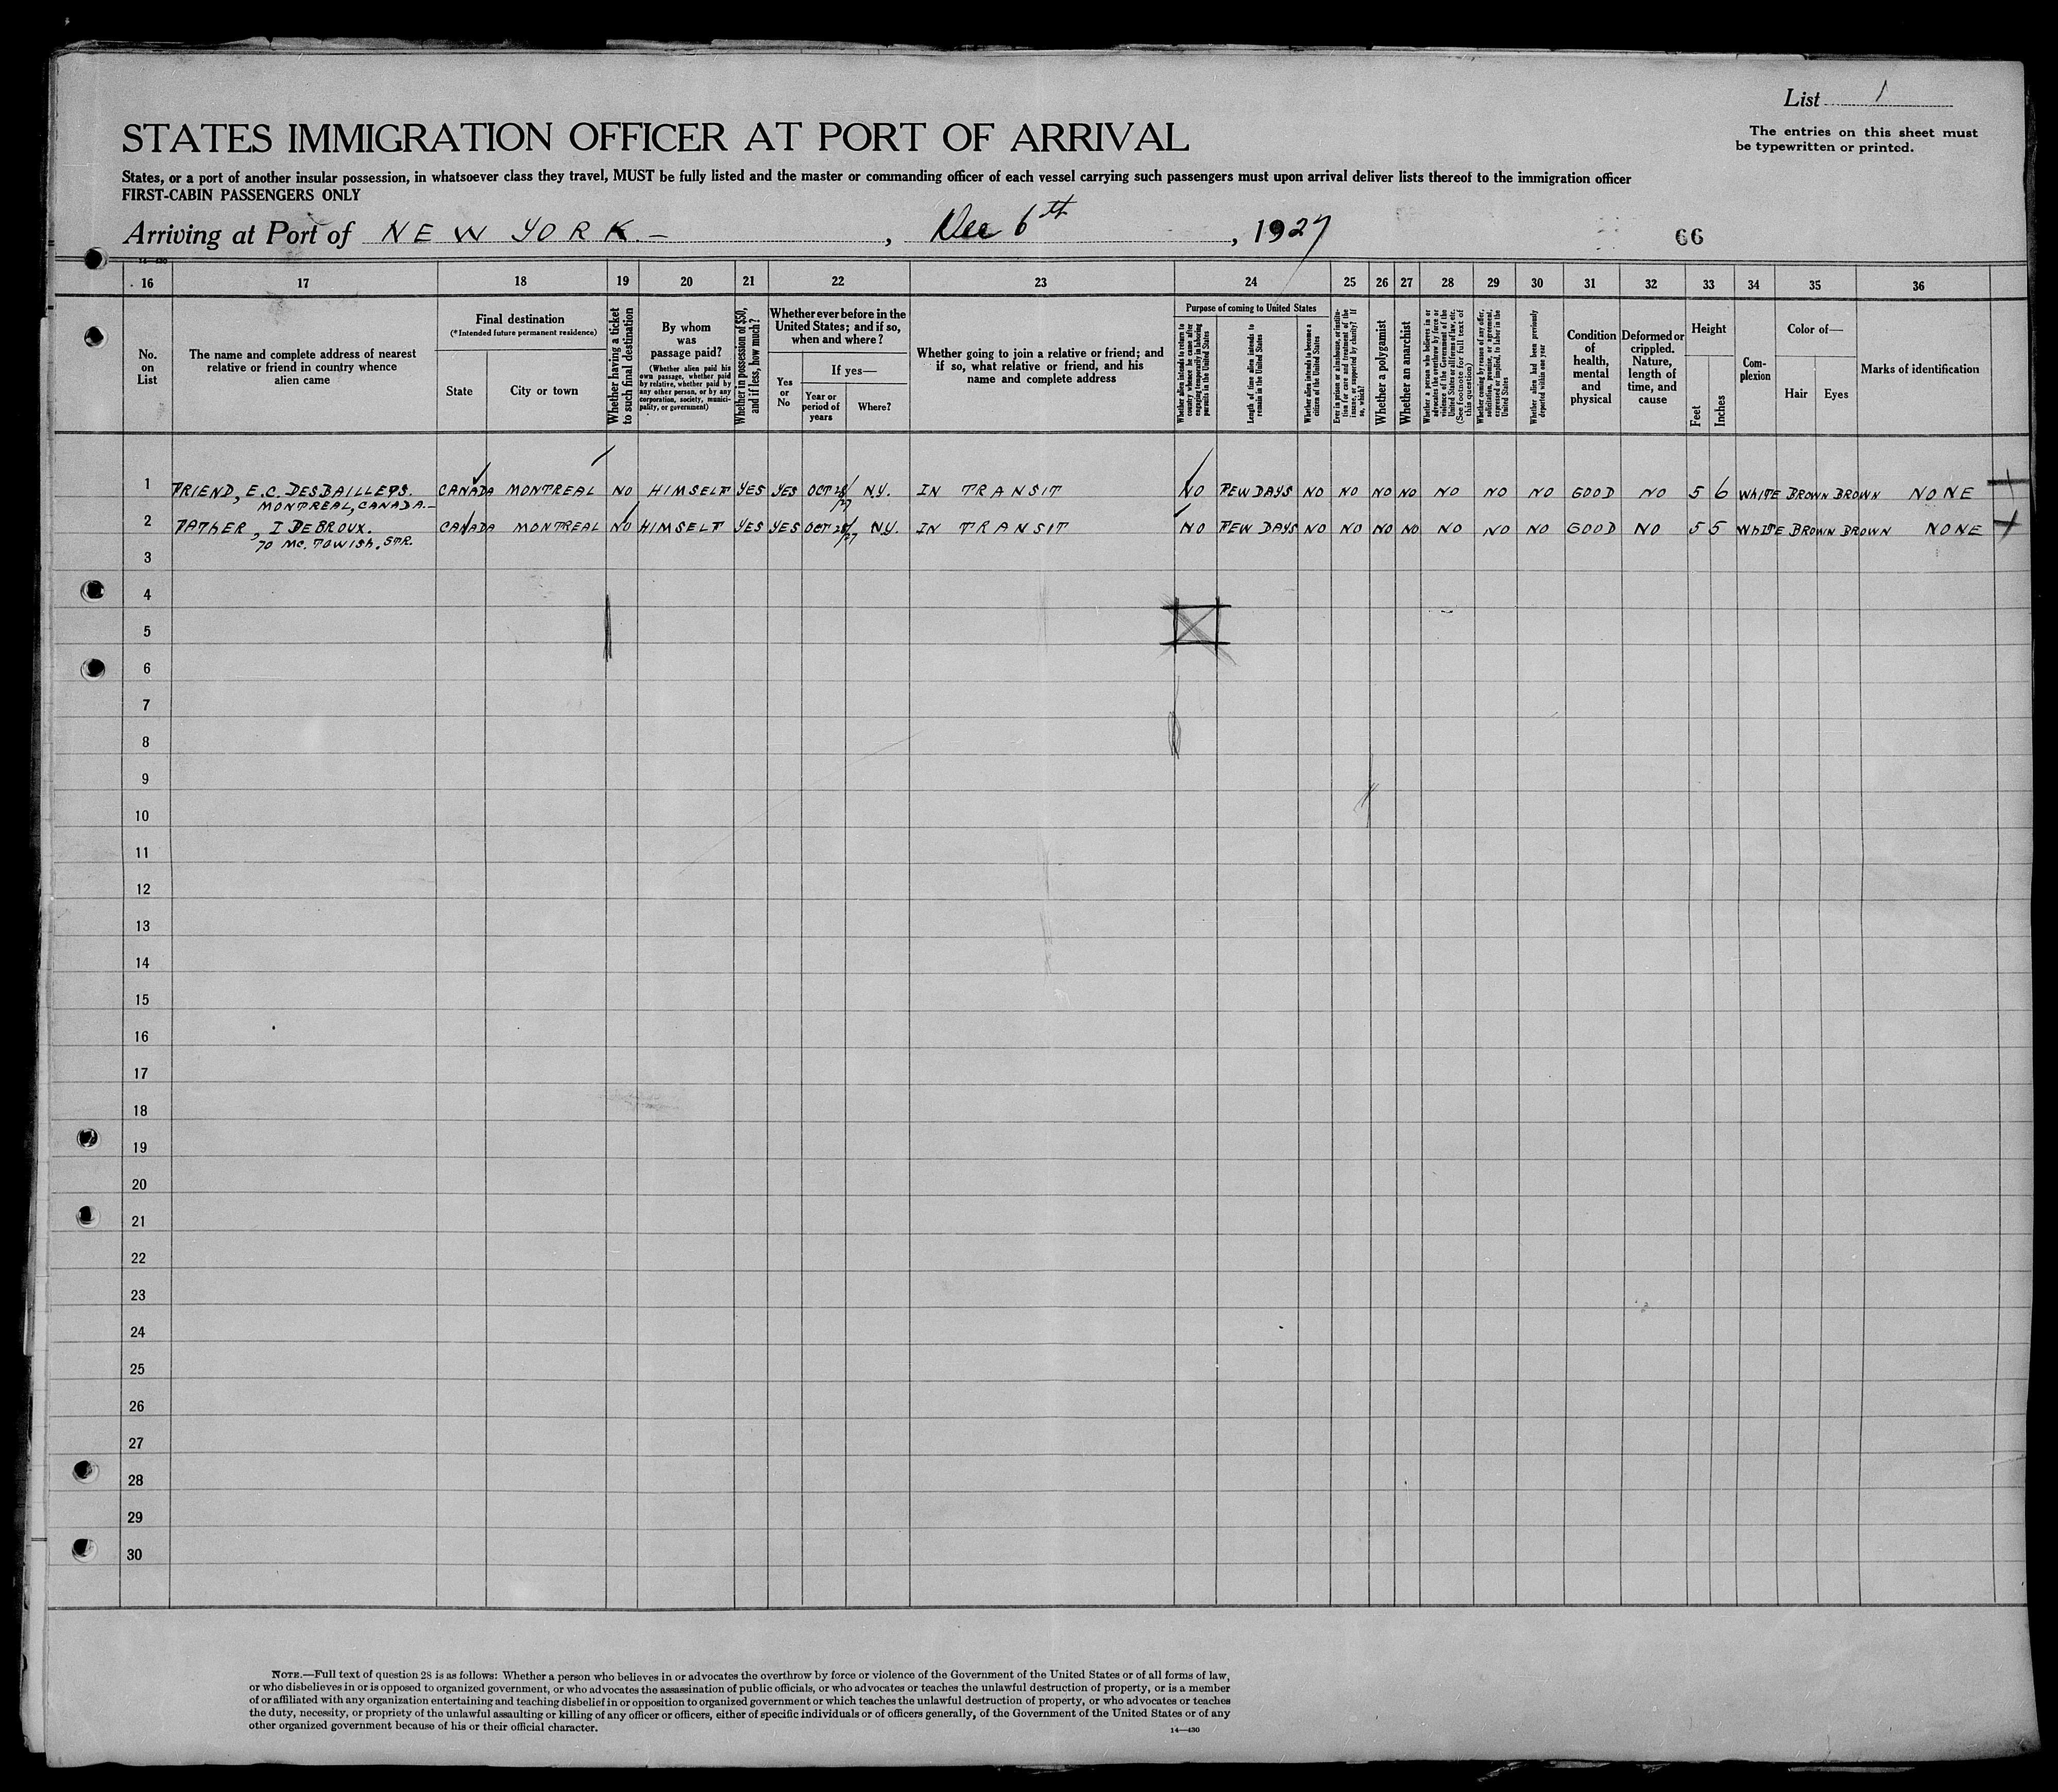 List 1
The entries on this sheet must
be typewritten or printed.
STATES IMMIGRATION OFFICER AT PORT OF ARRIVAL
States, or a port of another insular possession, in whatsoever class they travel, MUST be fully listed and the master or commanding officer of each vessel carrying such passengers must upon arrival deliver lists thereof to the immigration officer
FIRST-CABIN PASSENGERS ONLY
Arriving at Port of NEW YORK.—, Dec 6th, 1927
66
14—430
16 17 18 19 20 21 22 23 24 25 26 27 28 29 30 31 32 33 34 35 36
No. on List
The name and complete address of nearest relative or friend in country whence alien came
Final destination
(*Intended future permanent residence)
State
City or town
Whether having a ticket to such final destination
By whom was passage paid?
(Whether alien paid his own passage, whether paid by relative, whether paid by any other person, or by any corporation, society, municipality, or government)
Whether in possession of $50, and if less, how much?
Whether ever before in the United States; and if so, when and where?
Yes or No
If yes—
Year or period of years
Where?
Whether going to join a relative or friend; and if so, what relative or friend, and his name and complete address
Purpose of coming to United States
Whether alien intends to return to country whence he came after engaging temporarily in laboring pursuits in the United States
Length of time alien intends to remain in the United States
Whether alien intends to become a citizen of the United States
Ever in prison or almshouse, or institution for care and treatment of the insane, or supported by charity? If so, which?
Whether a polygamist
Whether an anarchist
Whether a person who believes in or advocates the overthrow by force or violence of the Government of the United States or all forms of law, etc. (See footnote for full text of this question)
Whether coming by reason of any offer, solicitation, promise, or agreement, expressed or implied, to labor in the United States
Whether alien had been previously deported within one year
Condition of health, mental and physical
Deformed or crippled. Nature, length of time, and cause
Height
Feet
Inches
Complexion
Color of—
Hair
Eyes
Marks of identification
1 FRIEND, E.C. DESBAILLETS. CANADA MONTREAL NO HIMSELF YES YES OCT 28/27 N.Y. IN TRANSIT NO FEW DAYS NO NO NO NO NO NO NO GOOD NO 5 6 WHITE BROWN BROWN NONE
MONTREAL, CANADA.—
2 FATHER, I DEBROUX. CANADA MONTREAL NO HIMSELF YES YES OCT 28/27 N.Y. IN TRANSIT NO FEW DAYS NO NO NO NO NO NO NO GOOD NO 5 5 WHITE BROWN BROWN NONE
70 MC. TAWISH. STR.
3
4
5
6
7
8
9
10
11
12
13
14
15
16
17
18
19
20
21
22
23
24
25
26
27
28
29
30
NOTE.—Full text of question 28 is as follows: Whether a person who believes in or advocates the overthrow by force or violence of the Government of the United States or of all forms of law,
or who disbelieves in or is opposed to organized government, or who advocates the assassination of public officials, or who advocates or teaches the unlawful destruction of property, or is a member
of or affiliated with any organization entertaining and teaching disbelief in or opposition to organized government or which teaches the unlawful destruction of property, or who advocates or teaches
the duty, necessity, or propriety of the unlawful assaulting or killing of any officer or officers, either of specific individuals or of officers generally, of the Government of the United States or of any
other organized government because of his or their official character.
14—430